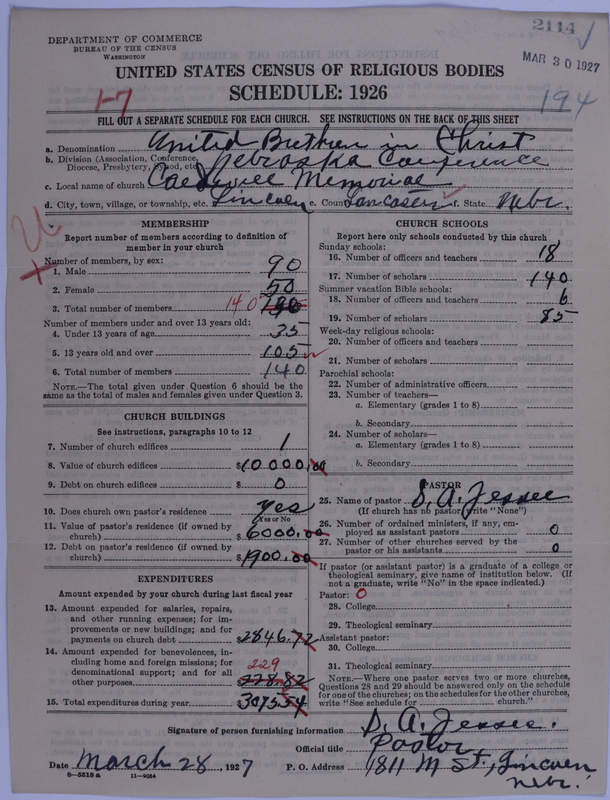 2114
DEPARTMENT OF COMMERCE
BUREAU OF THE CENSUS
WASHINGTON
MAR 30 1927
UNITED STATES CENSUS OF RELIGIOUS BODIES
SCHEDULE: 1926
1-7
194
FILL OUT A SEPARATE SCHEDULE FOR EACH CHURCH. SEE INSTRUCTIONS ON THE BACK OF THIS SHEET
a. Denomination United Brethren in Christ
b. Division (Association, Conference, Diocese, Presbytery, Synod, etc.) Nebraska Conference
c. Local name of church Caldwell Memorial
d. City, town, village, or township, etc. Lincoln e. County Lancaster f. State Nebr.
MEMBERSHIP
Report number of members according to definition of
member in your church
Number of members, by sex:
1. Male 90
2. Female 50
3. Total number of members 140
Number of members under and over 13 years old:
4. Under 13 years of age 35
5. 13 years old and over 105
6. Total number of members 140
NOTE.—The total given under Question 6 should be the
same as the total of males and females given under Question 3.
CHURCH BUILDINGS
See instructions, paragraphs 10 to 12
7. Number of church edifices 1
8. Value of church edifices $10000.00
9. Debt on church edifices $ 0
10. Does church own pastor's residence Yes
Yes or No
11. Value of pastor's residence (if owned by
church) $6000.00
12. Debt on pastor's residence (if owned by
church) $1900.00
EXPENDITURES
Amount expended by your church during last fiscal year
13. Amount expended for salaries, repairs,
and other running expenses; for im-
provements or new buildings; and for
payments on church debt $2846.72
14. Amount expended for benevolences, in-
cluding home and foreign missions; for
denominational support; and for all
229
other purposes 228.82
15. Total expenditures during year $3075.54
CHURCH SCHOOLS
Report here only schools conducted by this church
Sunday schools:
16. Number of officers and teachers 18
17. Number of scholars 140
Summer vacation Bible schools:
18. Number of officers and teachers 6
19. Number of scholars 85
Week-day religious schools:
20. Number of officers and teachers
21. Number of scholars
Parochial schools:
22. Number of administrative officers
23. Number of teachers—
a. Elementary (grades 1 to 8)
b. Secondary
24. Number of scholars—
a. Elementary (grades 1 to 8)
b. Secondary
PASTOR
25. Name of pastor D. A. Jessee
(If church has no pastor, write "None")
26. Number of ordained ministers, if any, em-
ployed as assistant pastors 0
27. Number of other churches served by the
pastor or his assistants 0
If pastor (or assistant pastor) is a graduate of a college or
theological seminary, give name of institution below. (If
not a graduate, write "No" in the space indicated.)
Pastor: 0
28. College
29. Theological seminary
Assistant pastor:
30. College
31. Theological seminary
NOTE.—Where one pastor serves two or more churches,
Questions 28 and 29 should be answered only on the schedule
for one of the churches; on the schedules for the other churches,
write "See schedule for church."
Signature of person furnishing information D. A. Jessee.
Official title Pastor
Date March 28, 1927 P. O. Address 1811 M St., Lincoln
Nebr.
8—5518 a 11—9064